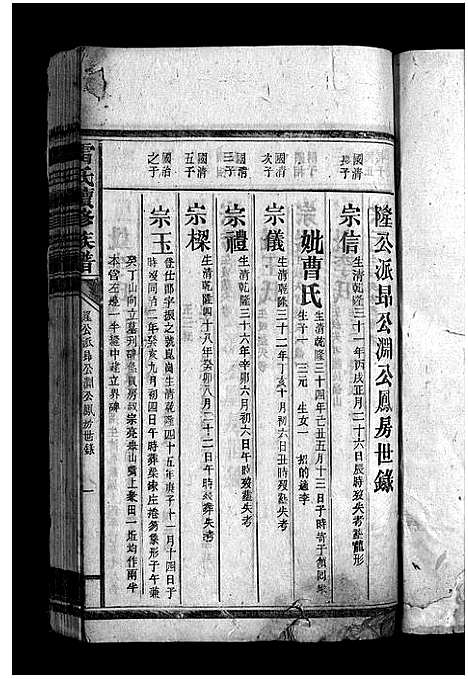 隆公派昻公淵公鳳房世錄
國清長子
宗信
生清乾隆三十一年丙戌正月二十六日辰時歿失考葬龍形
妣曹氏
生清乾隆三十四年己丑五月十三日子時
生子一 三元 生女一 招的適李
國清次子
宗儀
生清乾隆三十二年丁亥十月初六日丑時歿葬失考
國清三子
宗禮
生清乾隆三十六年辛卯六月初六日午時歿葬失考
國清五子
宗樑
生清乾隆四十八年癸卯八月二十二日午時歿葬失考
國治之子
宗玉
登仕郎字振之號崑崗生清乾隆四十五年庚子十二月十四日子
時歿同治二年癸亥九月初四日午時葬梁家庄捲象形子午兼
癸丁山向立墓列碑
本官左邊一半擡中建立界碑
雷氏續修族譜
隆公派昻公淵公鳳房世錄
一